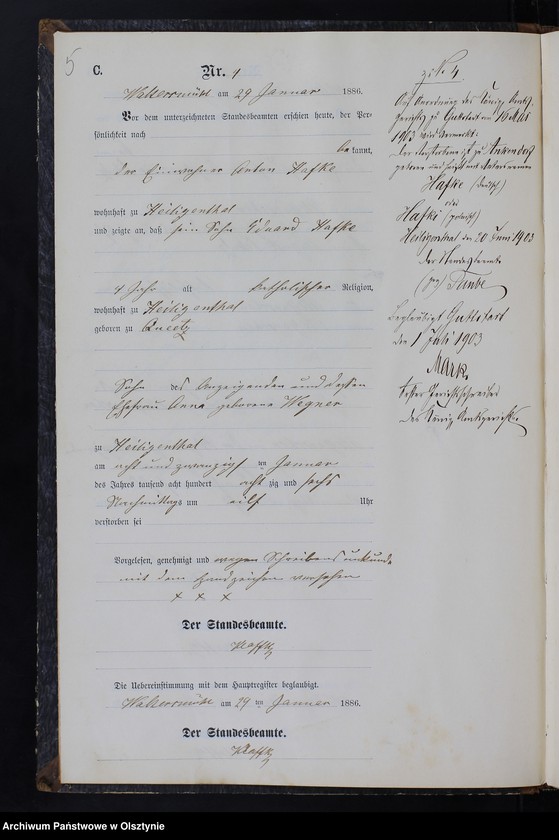 5
C.
Nr. 4
Walkersmühl am 29 Januar 1886.
Vor dem unterzeichneten Standesbeamten erschien heute, der Per-
sönlichkeit nach
bekannt,
der Einwohner Anton Hafke
wohnhaft zu Heiligenthal
und zeigte an, daß sein Sohn Eduard Hafke
4 Jahr alt katholischer Religion,
wohnhaft zu Heiligenthal
geboren zu Queetz
Sohn des Anzeigenden und dessen
Ehefrau Anna geborene Wegner
zu Heiligenthal
am acht und zwanzigsten Januar
des Jahres tausend acht hundert acht zig und sechs
Nachmittags um eilf Uhr
verstorben sei
Vorgelesen, genehmigt und wegen Schreibensunkunde
mit dem Handzeichen versehen
x x x
Der Standesbeamte.
Klafft
Die Uebereinstimmung mit dem Hauptregister beglaubigt.
Walkersmühl am 29 ten Januar 1886.
Der Standesbeamte.
Klafft
zu No 4.
Auf Anordnung des Königl. Amts-
gerichts zu Guttstadt vom 16 Mai
1903 wird vermerkt:
Der Verstorbene ist zu Ankendorf
geboren und heißt mit Vatersnamen
Hafke (deutsch)
Hafki (polnisch)
Heiligenthal den 20 Juni 1903
Der Standesbeamte
Beglaubigt Guttstadt
den 1 Juli 1903
Gerichtsschreiber
des Königl. Amtsgerichts
Archiwum Państwowe w Olsztynie